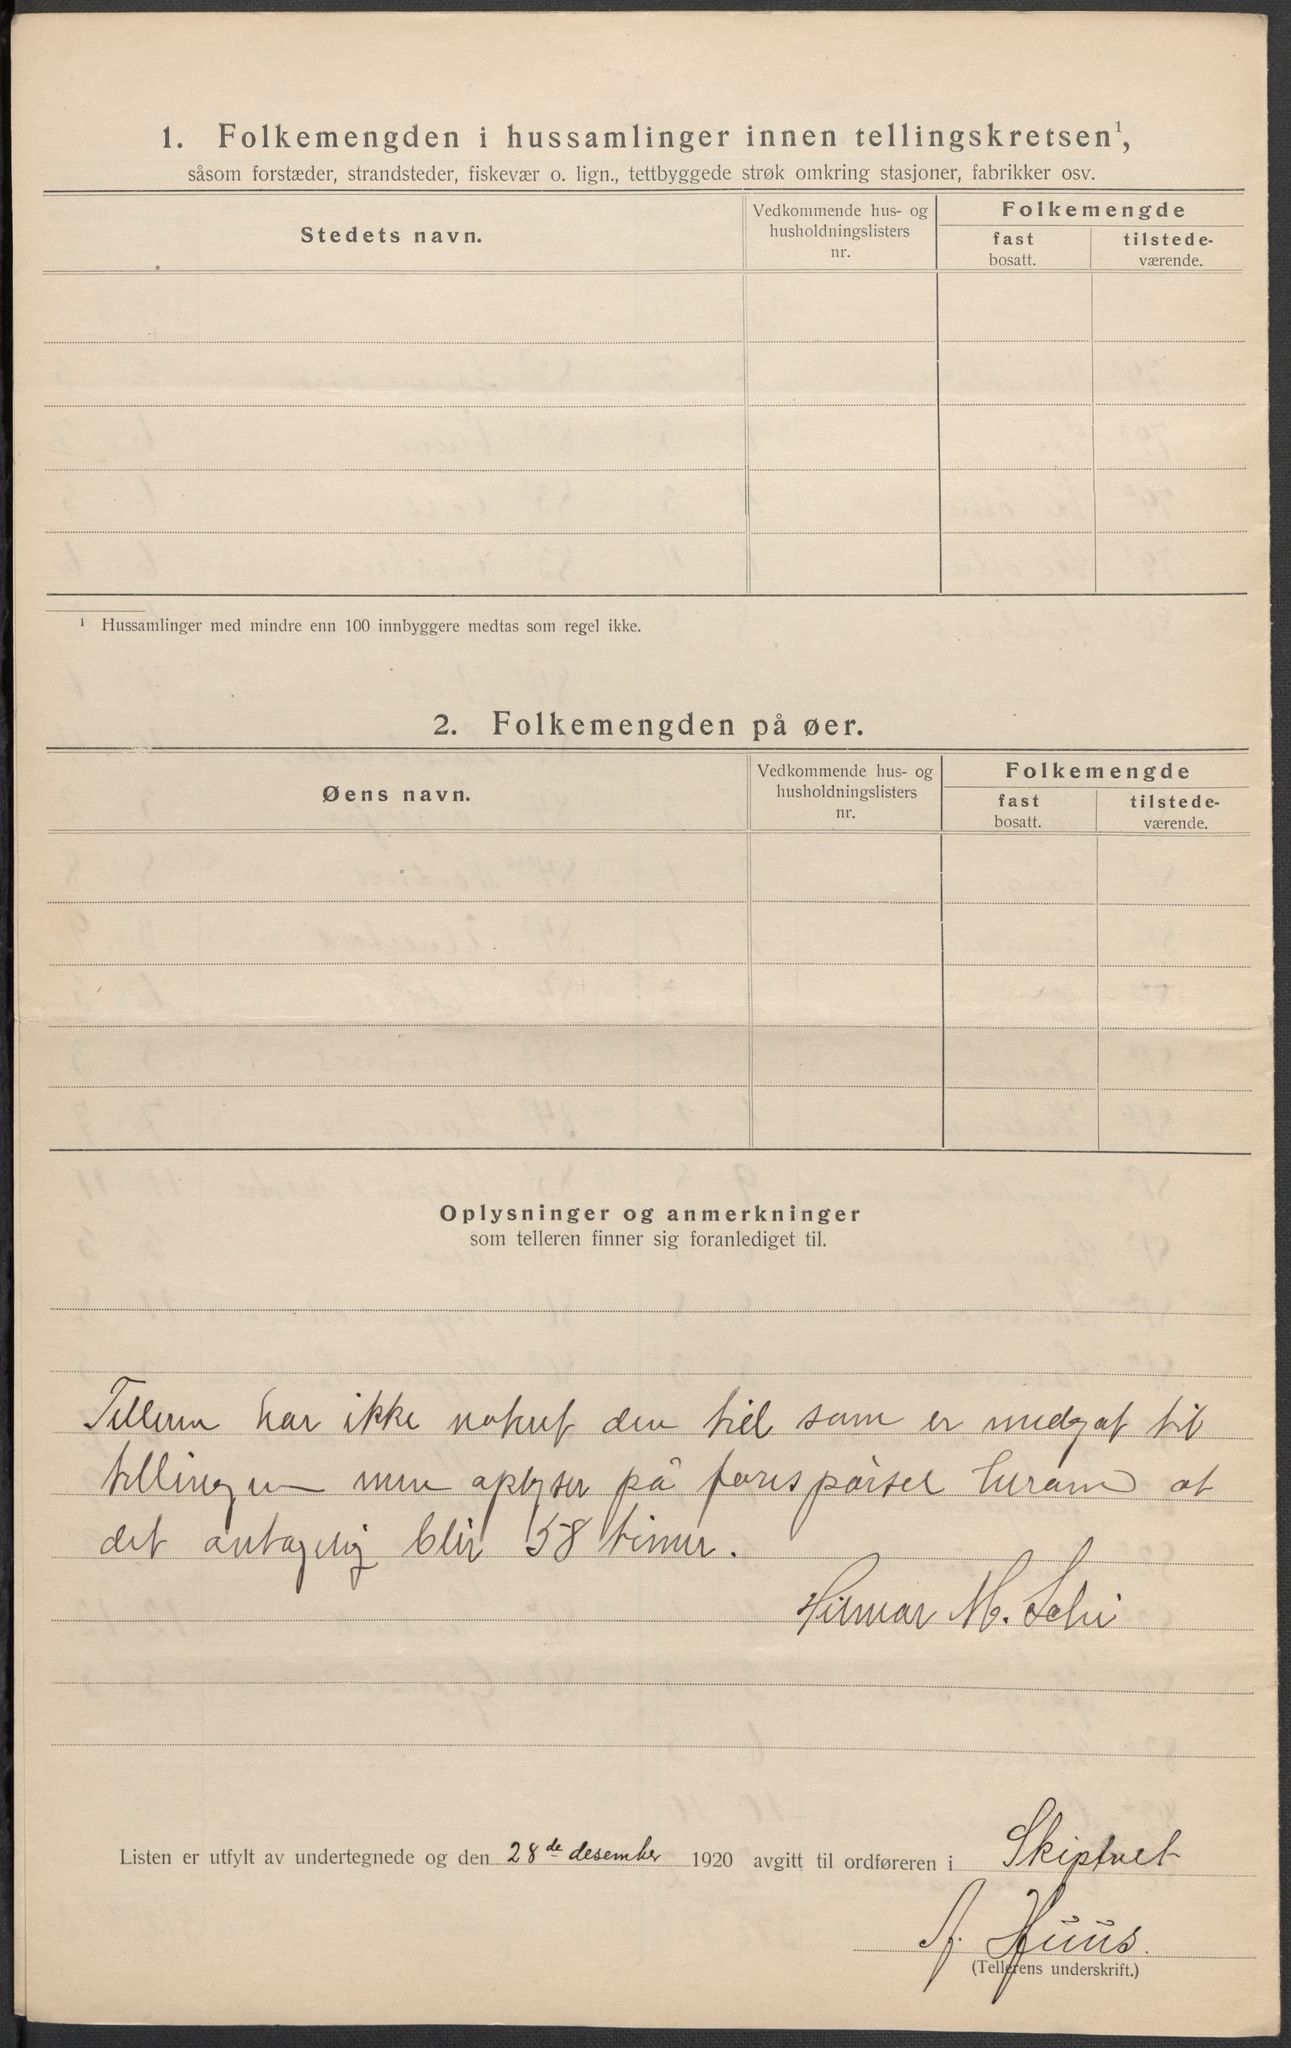 1. Folkemengden i hussamlinger innen tellingskretsen¹,
såsom forstæder, strandsteder, fiskevær o. lign., tettbyggede strøk omkring stasjoner, fabrikker osv.
Stedets navn.
Vedkommende hus- og
husholdningslisters
nr.
Folkemengde
fast
bosatt.
tilstede-
værende.
¹ Hussamlinger med mindre enn 100 innbyggere medtas som regel ikke.
2. Folkemengden på øer.
Øens navn.
Vedkommende hus- og
husholdningslisters
nr.
Folkemengde
fast
bosatt.
tilstede-
værende.
Oplysninger og anmerkninger
som telleren finner sig foranlediget til.
Telleren har ikke notert den tid som er medgåt til
tellingen men oplyser på forespørsel herom at
det antagelig blir 58 timer.
Hilmar M.
Listen er utfylt av undertegnede og den 28de desember 1920 avgitt til ordføreren i Skiptvet
A. Huus.
(Tellerens underskrift.)